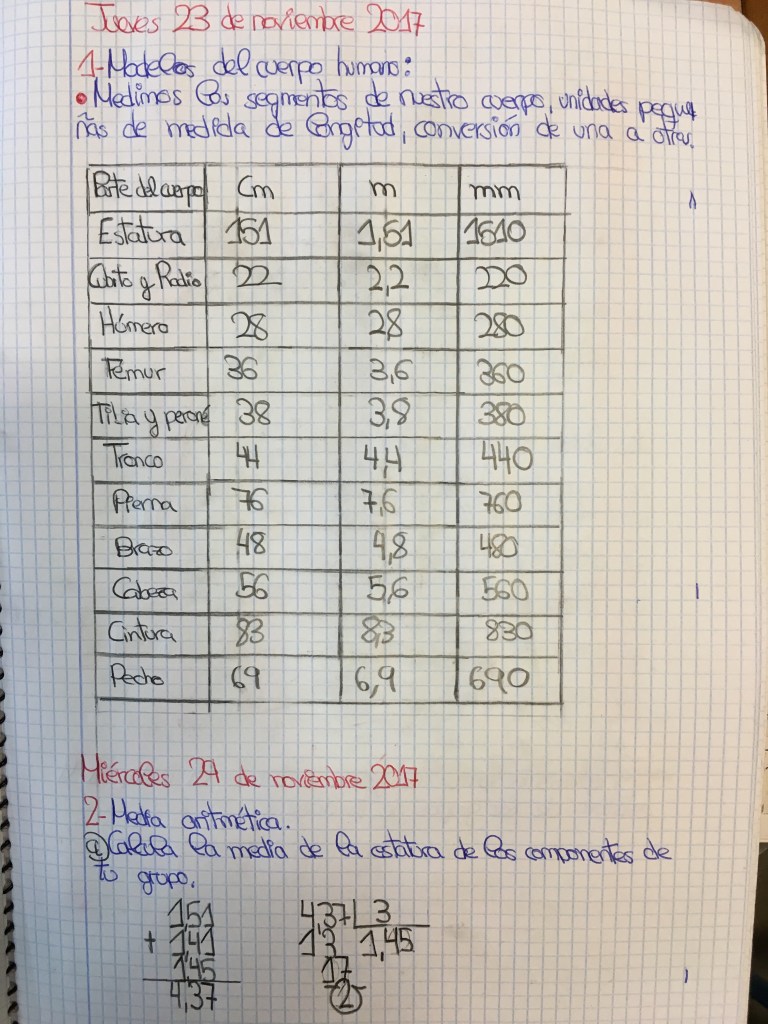 Jueves 23 de noviembre 2017
1-Modelos del cuerpo humano:
•Medimos los segmentos de nuestro cuerpo, unidades peque
ñas de medida de longitud, conversión de una a otras.
Parte del cuerpo Cm m mm
Estatura 151 1,51 1510
Cúbito y Radio 22 2,2 220
Húmero 28 28 280
Fémur 36 3,6 360
Tibia y peroné 38 3,8 380
Tronco 44 4,4 440
Pierna 76 7,6 760
Brazo 48 4,8 480
Cabeza 56 5,6 560
Cintura 83 8,3 830
Pecho 69 6,9 690
Miércoles 29 de noviembre 2017
2-Media aritmética.
a) Calcula la media de la estatura de los componentes de
tu grupo.
1,51 4,37 3
+ 1,41 13 1,45
1,45 17
4,37 2